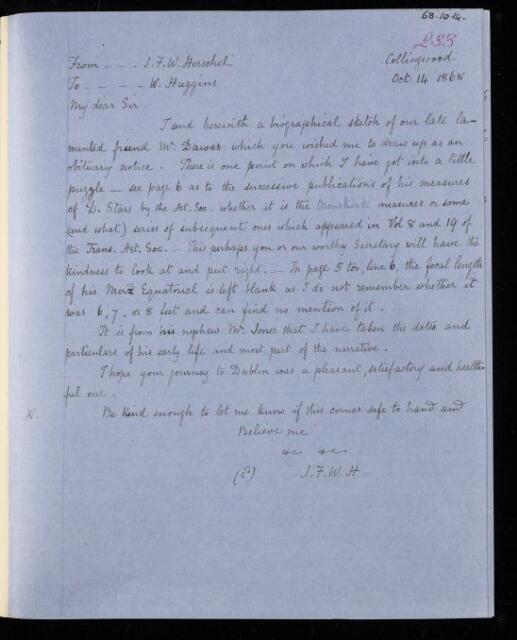 68.10.14.
233
From - - - J. F. W. Herschel
Collingwood
To - - - W. Huggins
Oct. 14 1868
My dear Sir
I send herewith a biographical sketch of our late la-
mented friend Mr. Dawes, which you wished me to draw up as an
obituary notice. There is one point on which I have got into a little
puzzle - see page 6 as to the successive publications of his measures
of D. Stars by the Ast. Soc. whether it is the Ormskirk measures or some
(and what) series of subsequent ones which appeared in Vol 8 and 19 of
the Trans. Ast. Soc. - This perhaps you or our worthy Secretary will have the
kindness to look at and put right. - In page 5 too, line 6, the focal length
of his Merz Equatorial is left blank as I do not remember whether it
was 6, 7, or 8 feet and can find no mention of it.
It is from his nephew Mr. Jones that I have taken the dates and
particulars of his early life and most part of the narrative.
I hope your journey to Dublin was a pleasant, satisfactory and health-
ful one.
Be kind enough to let me know if this comes safe to hand and
Believe me
&c &c
J. F. W. H